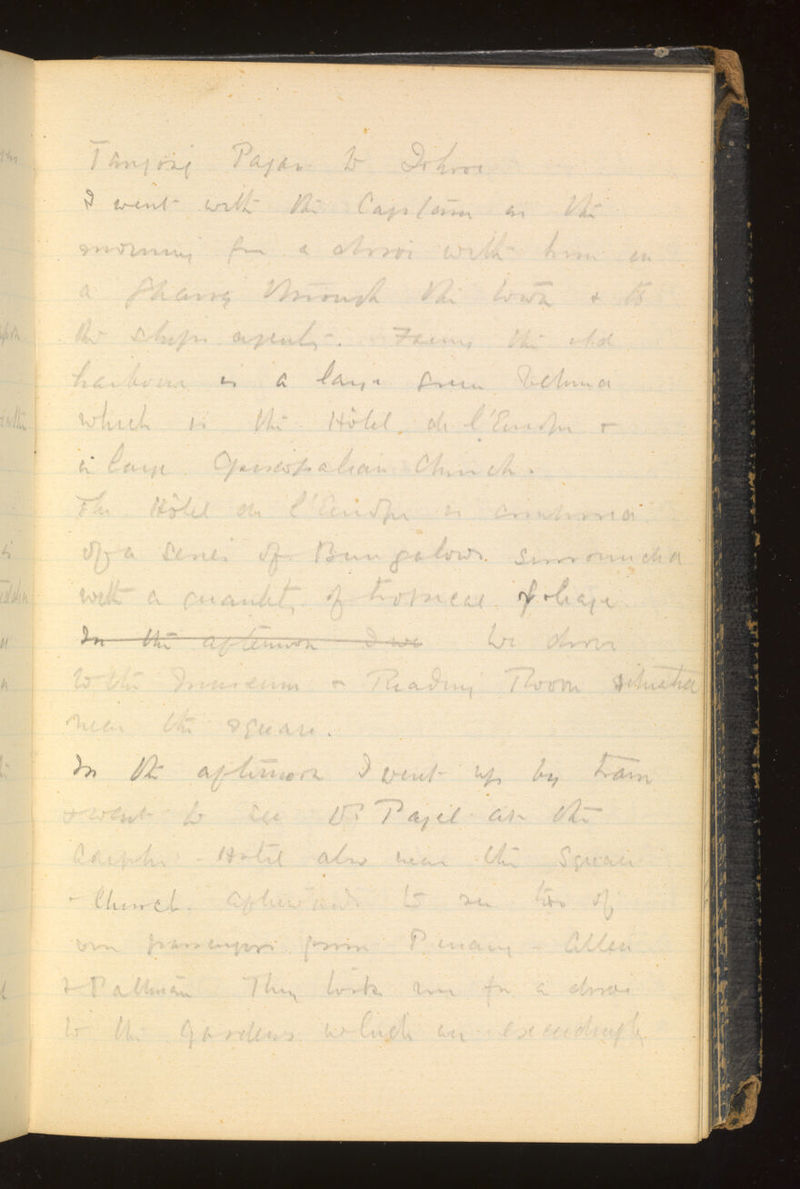 Tanjong Pagar to Johore
I went with the Captain in the
morning for a drive with him in
a Gharry through the town & to
the ships agents. Facing the old
harbour is a large green
which is the Hôtel de l'Europe &
a large Episcopalian Church.
The Hôtel de l'Europe is
of a series of Bungalows surrounded
with a quantity of tropical foliage.
In the afternoon I we We drove
to the Museum & Reading Room situated
near the square.
In the afternoon I went up by tram
& went to see Dr at the
Adelphi Hotel also near the Square
& Church. Afterwards to see two of
our passengers from Penang - Allen
& They took me for a drive
to the gardens which are exceedingly